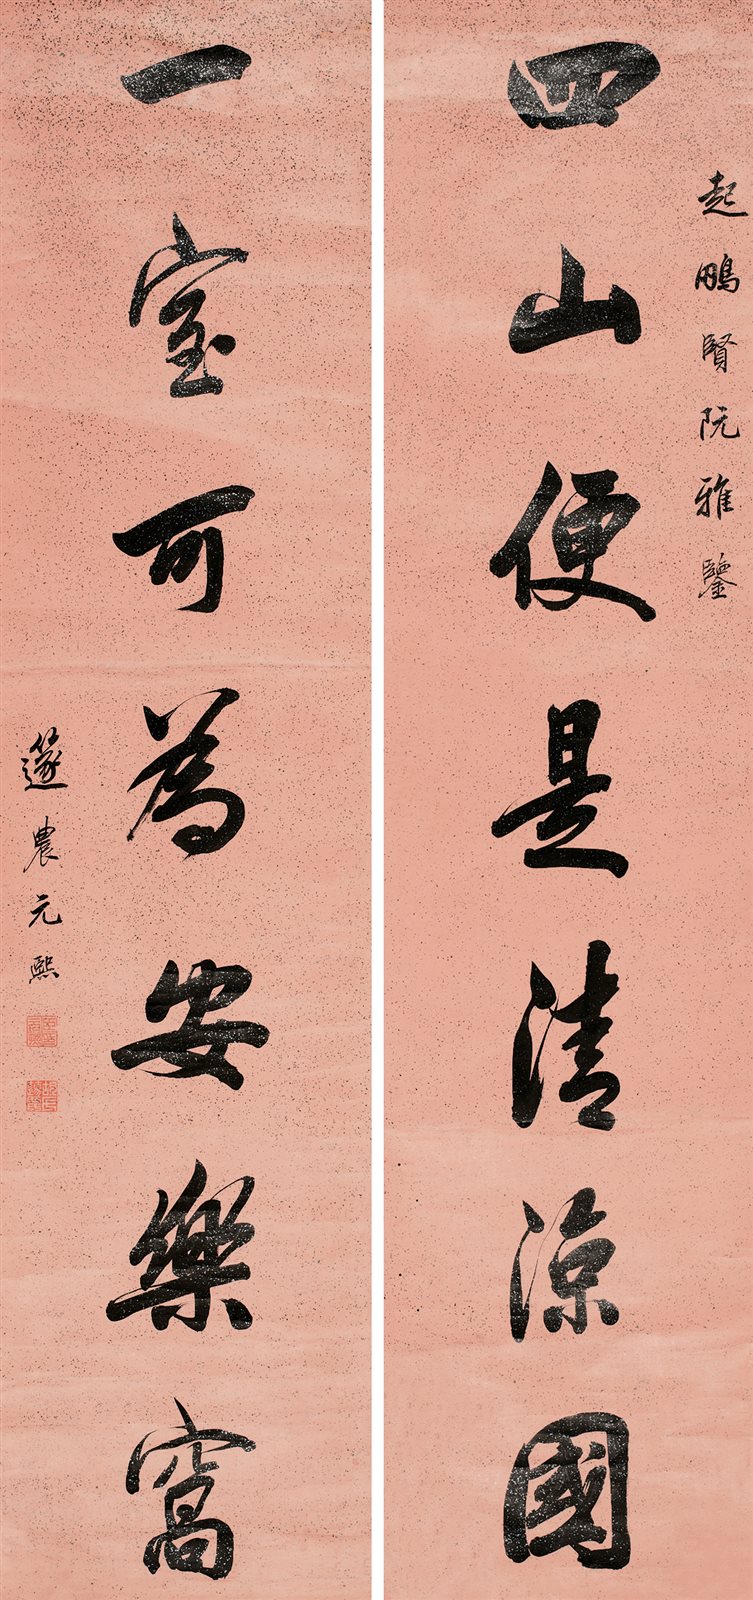 起鵬賢阮雅鑒
四山便是清涼國
一室可為安樂窩
邃農元熙